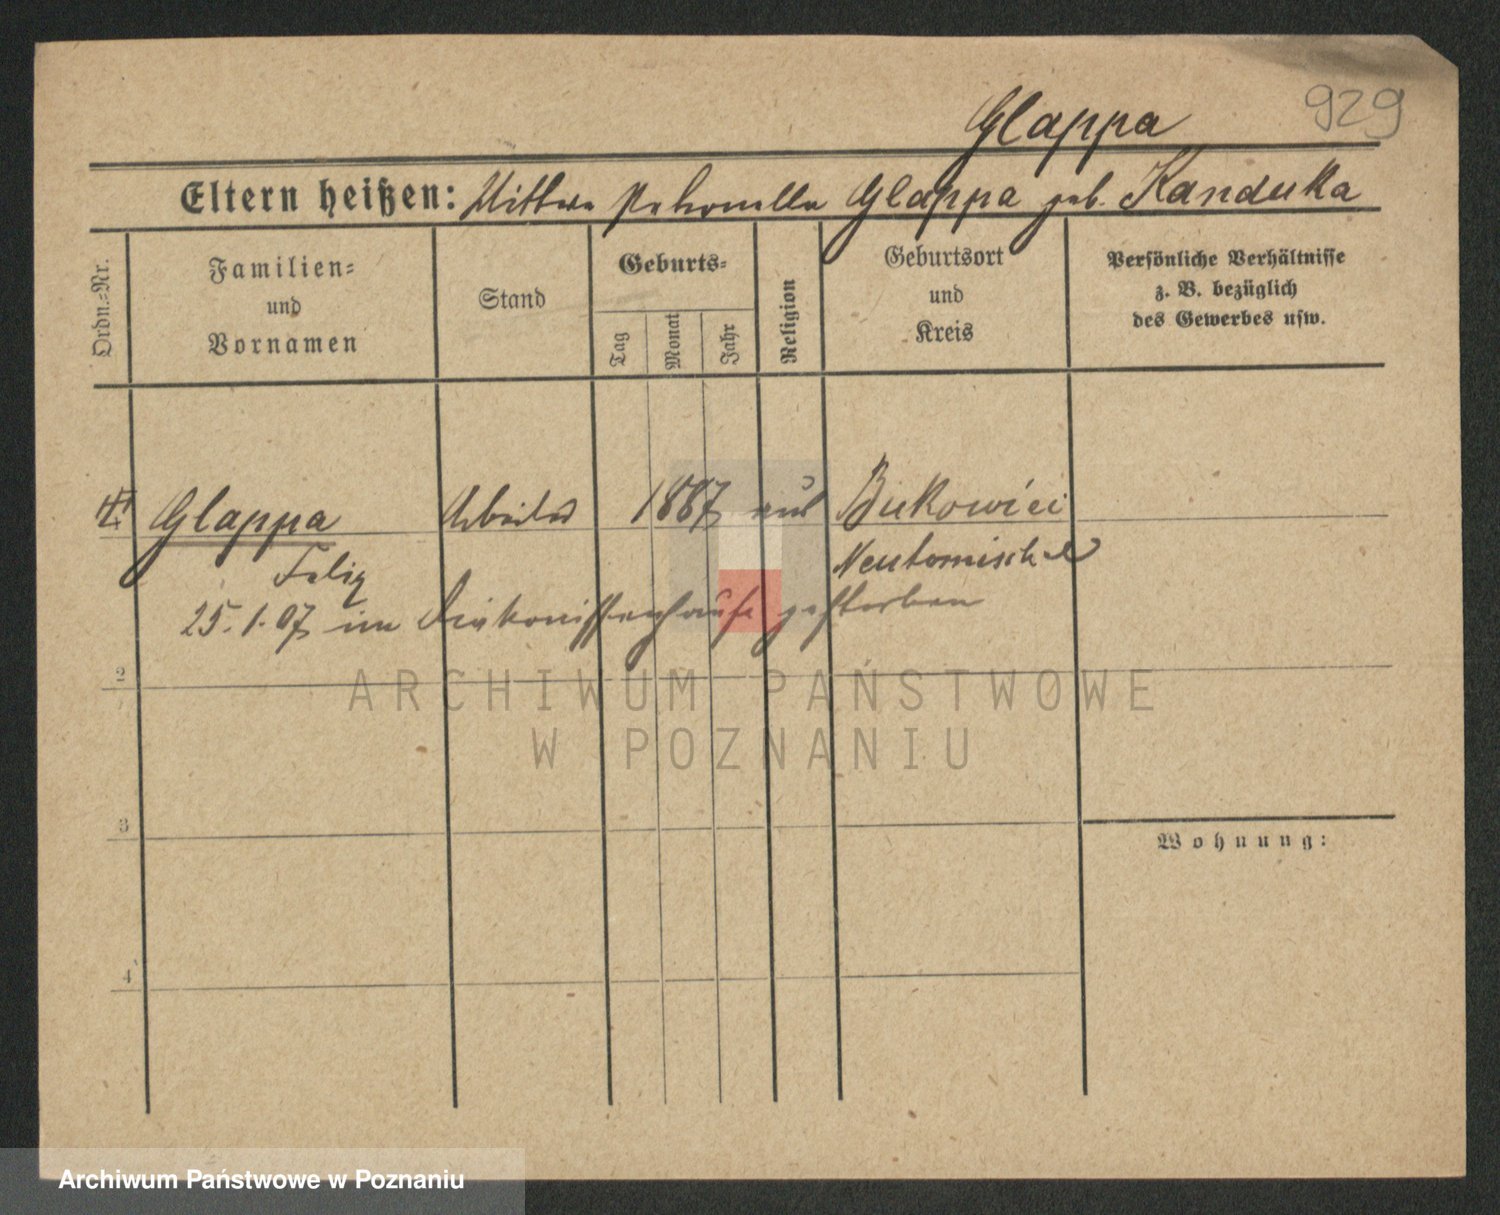 Glappa 929
Eltern heißen: Wittwe Petronella Glappa geb. Kanduka
Ordn.-Nr.
Familien-
und
Vornamen
Stand
Geburts-
Tag
Monat
Jahr
Religion
Geburtsort
und
Kreis
Persönliche Verhältnisse
z. B. bezüglich
des Gewerbes usw.
Glappa Arbeiter 1887 Bukowiec
Felix Neutomischel
25.1.07 im Diakonissenhause gestorben
2
3
4
Wohnung:
ARCHIWUM PAŃSTWOWE
W POZNANIU
Archiwum Państwowe w Poznaniu